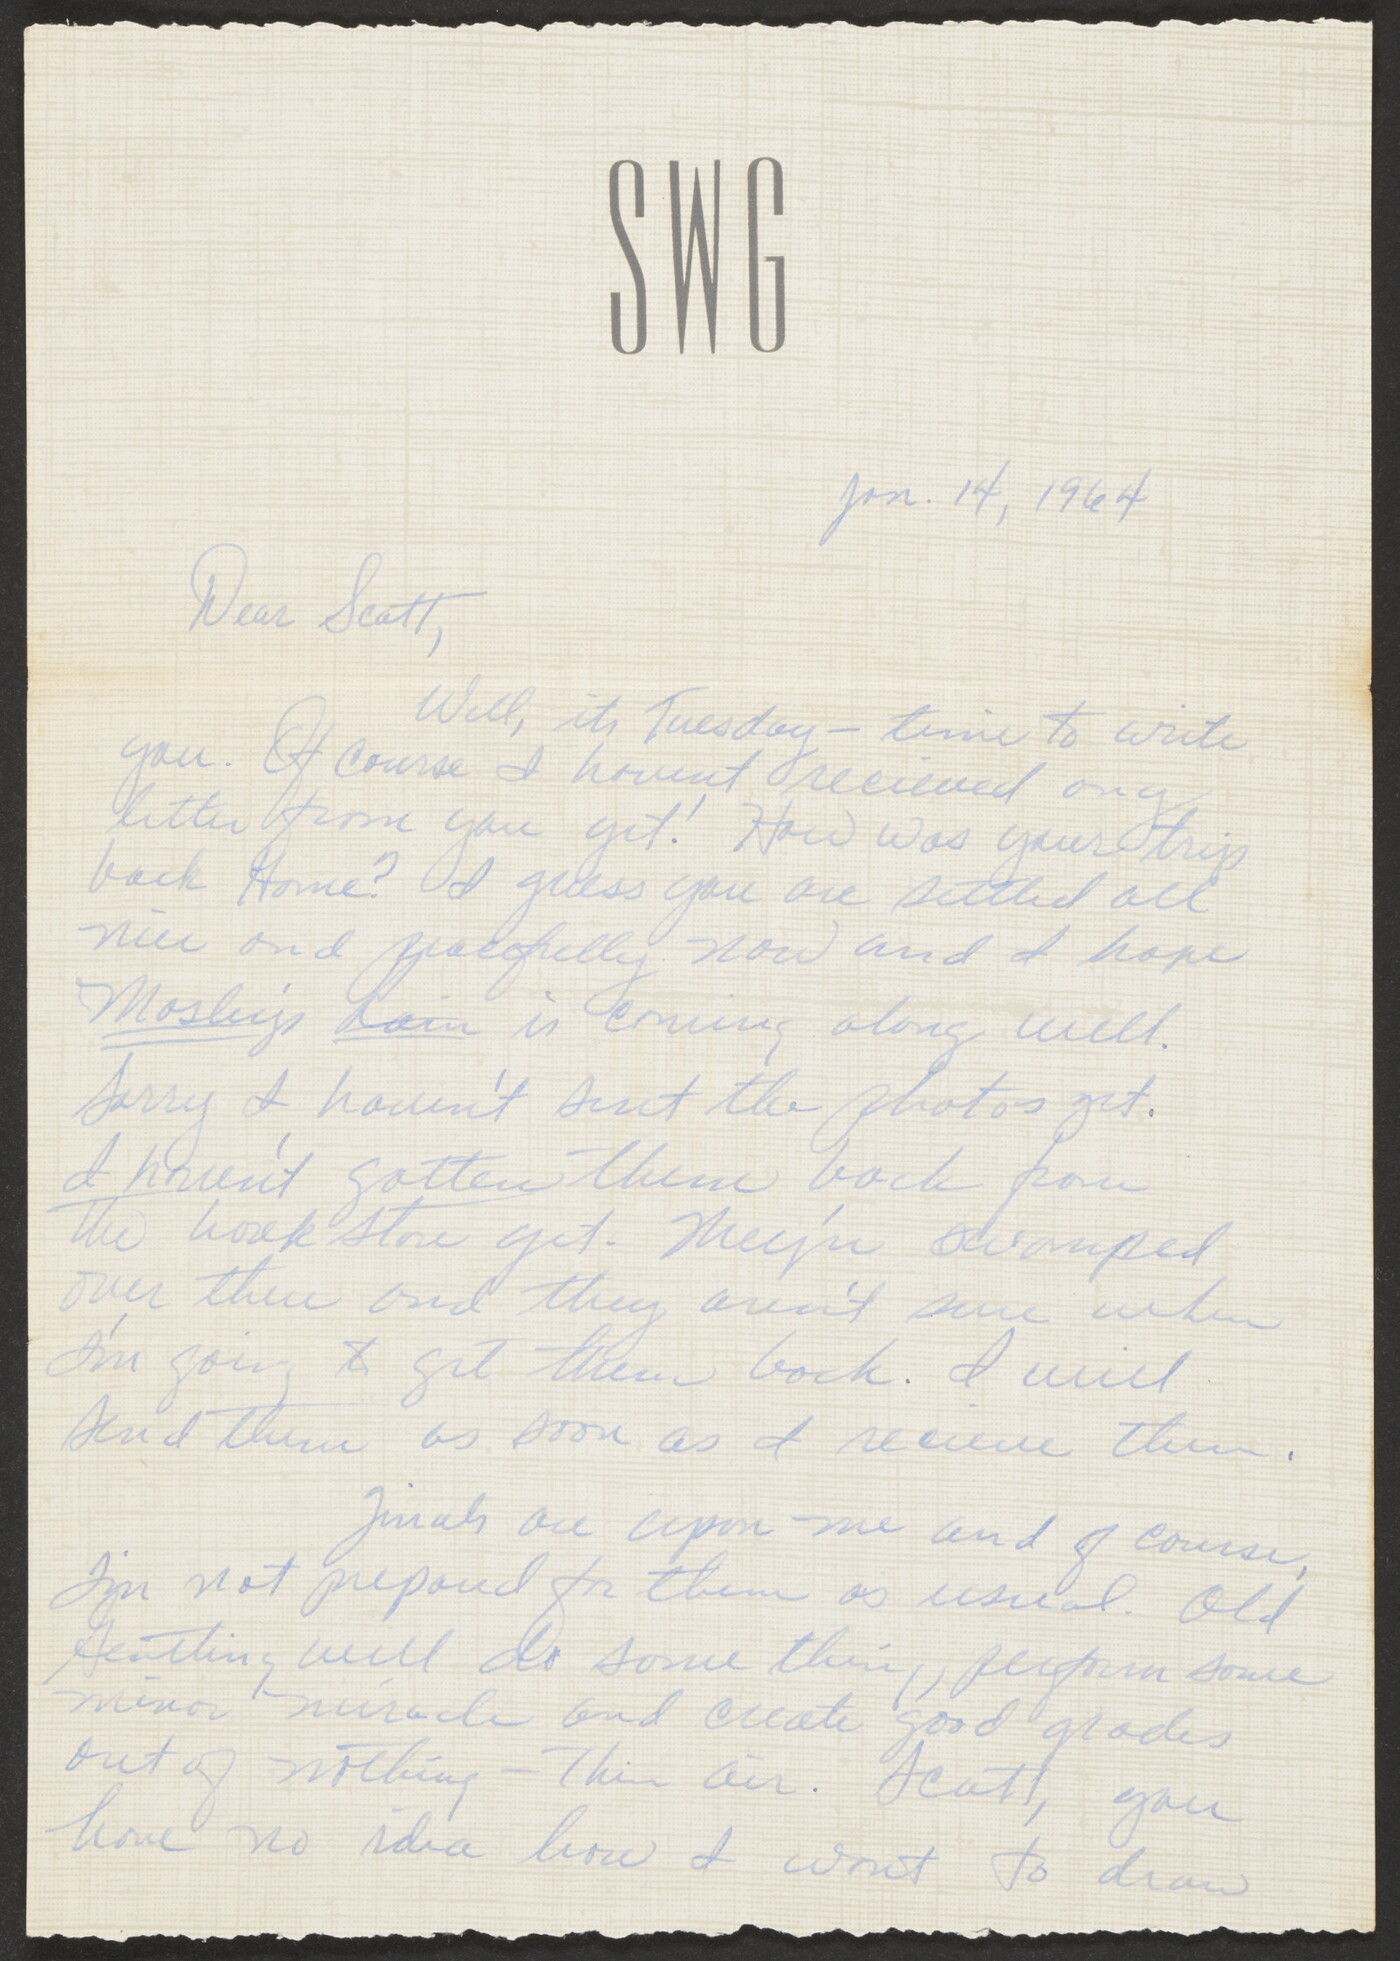 SWG
Jan. 14, 1964
Dear Scott,
Well, its Tuesday — time to write
you. Of course I havent recieved any
letter from you yet! How was your trip
back Home? I guess you are settled all
nice and peacefully now and I hope
Mosley's is coming along well.
Sorry I haven't sent the photos yet.
I haven't gotten them back from
the book store yet. They're swamped
over there and they aren't sure when
I'm going to get them back. I will
send them as soon as I recieve them.
Finals are upon me and of course,
I'm not prepared for them as usual. Old
will do some thing, perform some
minor miracle and create good grades
out of nothing — Thin air. Scott, you
have no idea how I want to draw